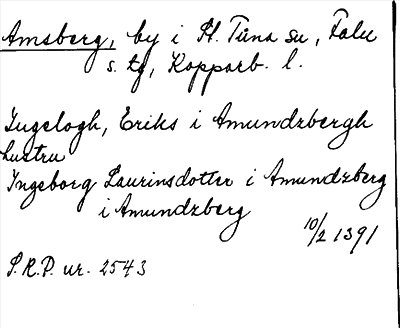 Amsberg, by i St. Tuna sn, Falu
s. tg, Kopparb. l.
Ingelogh, Eriks i Amundzbergh
hustru
Ingeborg Laurinsdotter i Amundzberg
i Amundzberg
10/2 1391
S.R.P. nr. 2543